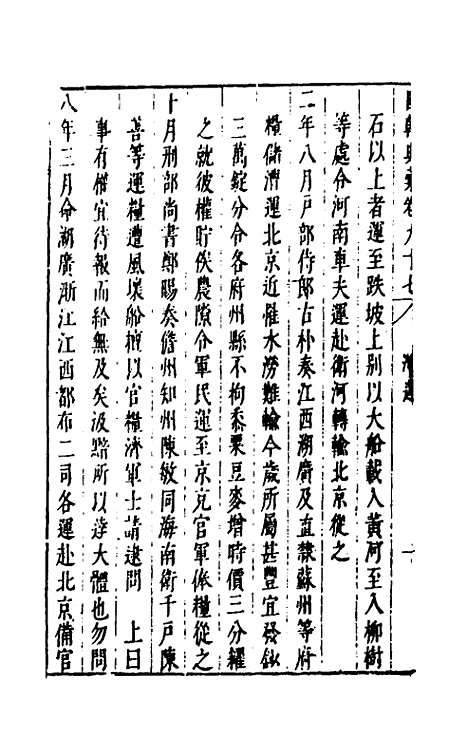 國朝典彙卷九十七 漕運
石以上者運至跌坡上別以大船載入黄河至入柳樹
等處令河南車夫運赴衛河轉輸北京從之
二年八月戶部侍郎古朴奏江西湖廣及直隸蘇州等府
糧儲漕運北京近惟水澇難輸今歲所屬甚豐宜發鈔
三萬錠分令各府州縣不拘黍粟豆麥增時價三分糴
之就彼權貯俟農隙令軍民運至京充官軍俸糧從之
十月刑部尚書鄭賜奏儋州知州陳敏同海南衛千戶陳
善等運糧遭風壞船擅以官糧濟軍士請逮問 上曰
事有權宜待報而給無及矣汲黯所以達大體也勿問
八年三月命湖廣浙江江西都布二司各運赴北京備官